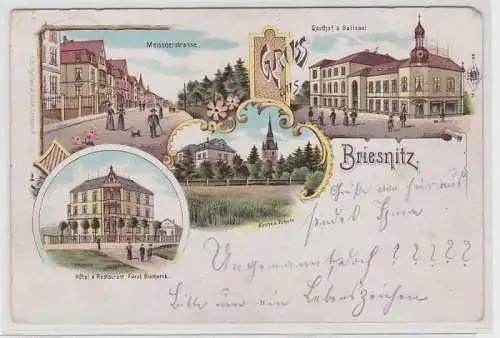 Meissnerstrasse.
Gruss
aus
Gasthof & Ballsaal
Briesnitz.
Kirche & Schule
Hôtel & Restaurant Fürst Bismarck.
Grüße von hier aus
sendet Ihnen
Ungenannt, doch ? ? ? ? ?
Bitte um ein Lebenszeichen